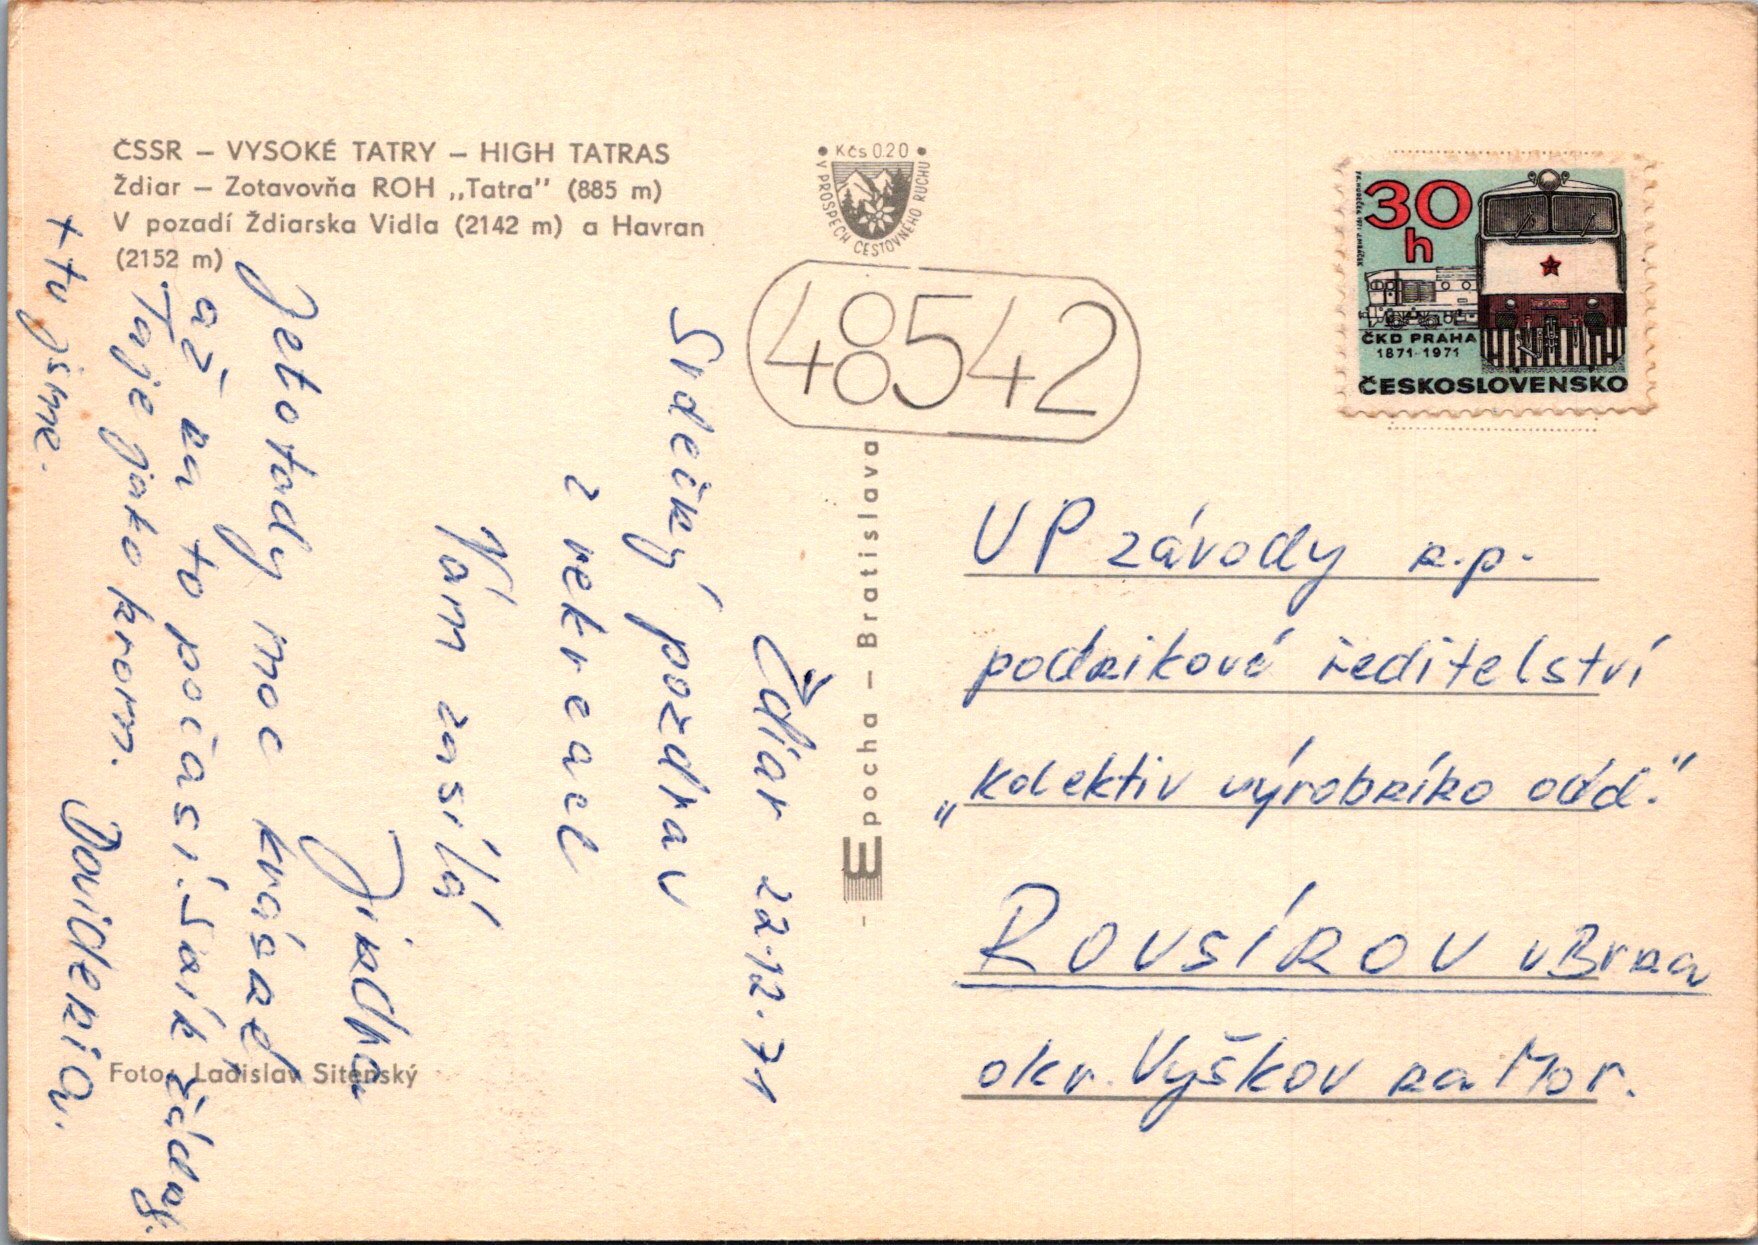 ČSSR – VYSOKÉ TATRY – HIGH TATRAS
Ždiar – Zotavovňa ROH „Tatra" (885 m)
V pozadí Ždiarska Vidla (2142 m) a Havran
(2152 m)
• Kčs 0.20 •
V PROSPECH CESTOVNÉHO RUCHU
48542
30
h
ČKD PRAHA
1871-1971
ČESKOSLOVENSKO
Epocha – Bratislava
Ždiar 22.12.71
Srdečný pozdrav
z rekreace
Vám zasílá
Jindra
Je to tady moc krásné
až na to počasí. Sníh žádný.
Taje jako krom.
+ tu jsme.
UP závody n.p.
podnikové ředitelství
„kolektiv výrobního odd."
ROUSÍNOV u Brna
okr. Vyškov na Mor.
Foto: Ladislav Sitenský